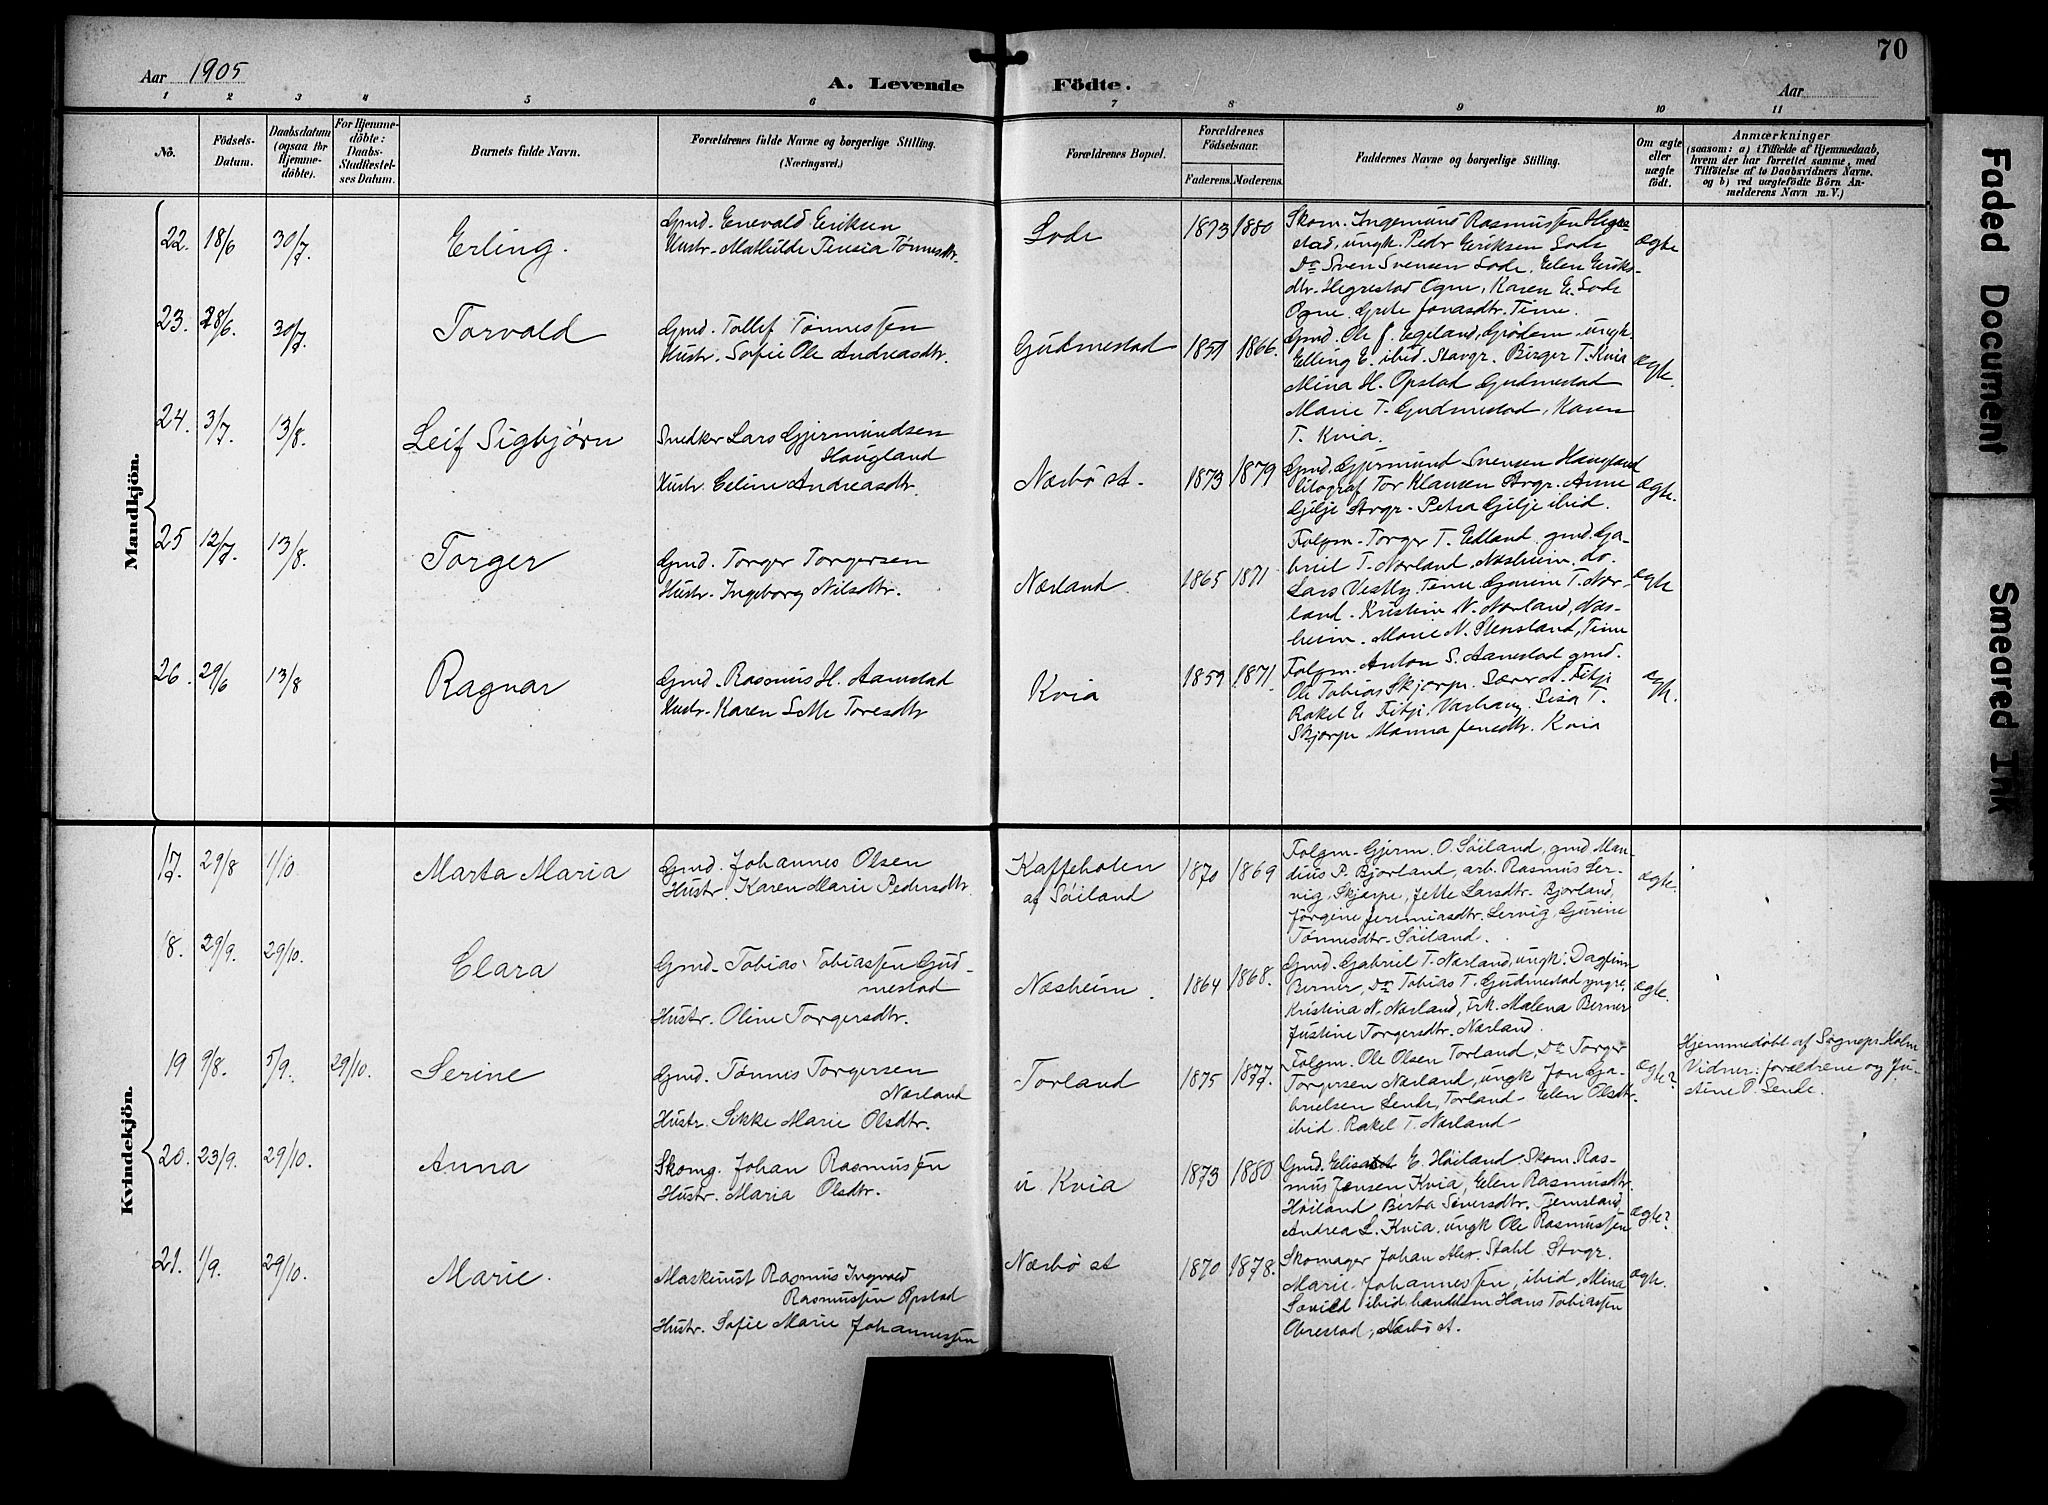 70
Aar 1905
A. Levende Födte.
Aar
1 2 3 4 5 6 7 8 9 10 11
No.
Födsels-
Datum.
Daabsdatum
(ogsaa for
Hjemme-
döbte).
For Hjemme-
döbte:
Daabs-
Stadfæstel-
ses Datum.
Barnets fulde Navn.
Forældrenes fulde Navne og borgerlige Stilling.
(Næringsvei.)
Forældrenes Bopæl.
Forældrenes
Födselsaar.
Faderens. Moderens.
Faddernes Navne og borgerlige Stilling.
Om ægte
eller
uægte
födt.
Anmærkninger
(saasom: a) i Tilfælde af Hjemmedaab,
hvem der har forrettet samme, med
Tilföielse af to Daabsvidners Navne.
og b) ved uægtefödte Börn An-
melderens Navn m. V.)
Mandkjön.
22. 18/6 30/7. Erling.
Gmd. Enevald Eriksen
Hustr. Mathilde Tensia Tønnesdtr.
Lode 1873 1880
Skom. Ingemund Rasmussen Hegre-
stad, ungk. Peder Eriksen Lode
Do Sven Svensen Lode. Elen Eriks-
dtr. Hegrestad Ogne, Karen E. Lode
Ogne. Grete Jonasdtr. Time.
ægte
23. 28/6. 30/7. Torvald
Gmd. Tollef Tønnessen
Hustr. Sofie Ole Andreasdtr.
Gudmestad 1859 1866.
Gmd. Ole J. Egeland, Grødem, ungk.
Elling E. ibid. Stavgr. Birger T. Kvia
Mina H. Opstad Gudmestad
Marie T. Gudmestad, Karen
T. Kvia.
ægte.
24. 3/7. 13/8. Leif Sigbjørn
Snedker Lars Gjermundsen
Haugland
Hustr. Celine Andreasdtr.
Nærbö st. 1873 1879
Gmd. Gjermund Svensen Haugland
litograf Tor Klausen Stvgr. Anne
Gjilje Stvgr. Petra Gjilje ibid.
ægte.
25 12/7. 13/8. Torger
Gmd. Torger Torgersen
Hustr. Ingeborg Nilsdtr.
Nærland. 1865 1871
Folgm. Torger T. Edland. gmd. Ga-
briel T. Nærland, Næsheim. do.
Lars Vestly, Time Gurine T. Nær-
land. Kristine N. Nærland, Næs-
heim. Marie N. Stensland, Time
ægte
26. 29/6 13/8 Ragnar
Gmd. Rasmus H. Aanestad
Hustr. Karen Sette Toresdtr
Kvia 1859 1871.
Folgm. Anton S. Aanestad gmd.
Ole Tobias Skjorpe. Fitje
Rakel E. Fitje, Varhaug. Sisa T.
Skjorpe Manna Jensdtr. Kvia
ægte.
Kvindekjön.
17. 29/8 1/10. Marta Maria
Gmd. Johannes Olsen
Hustr. Karen Marie Pedersdtr.
Kaffeholen
af Söiland
1870 1869
Folgm. Gjerm. O. Söiland, gmd. Man-
dius P. Bjorland, arb. Rasmus Ler-
vig, Skjorpe, Jette Larsdtr. Bjorland,
Jörgine Jeremiasdtr. Lervig, Gurine
Tönnesdtr. Söiland.
ægte.
18. 29/9. 29/10. Clara
Gmd. Tobias Tobiassen Gud-
mestad
Hustr. Oline Torgersdtr.
Næsheim. 1864 1868.
Gmd. Gabriel T. Nærland, ungk. Dagfinn
Berner, Do Tobias T. Gudmestad yngre,
Kristina N. Nærland, frk. Malena Berner
Justine Torgersdtr. Nærland.
ægte.
19 9/8. 5/9. 29/10. Serine
Gmd. Tönnes Torgersen
Nærland
Hustr. Sikke Marie Olsdtr.
Torland 1875 1877.
Folgm. Ole Olsen Torland, Do Torger
Torgersen Nærland, ungk Jon Ga-
brielsen Lende, Torland. Elen Olsdtr.
ibid. Rakel T. Nærland
ægte?
Hjemmedöbt af Sognepr. Holm
Vidner: forældrene og Ju-
stine P. Lende.
20. 23/9. 29/10. Anna
Skomg. Johan Rasmussen
Hustr. Maria Olsdtr.
u. Kvia 1873 1880
Gmd. Elisæt E. Höiland. Skom. Ras-
mus Jensen Kvia, Elen Rasmusdtr.
Höiland, Berta Siversdtr. Tjemsland,
Andrea L. Kvia, ungk Ole Rasmussen
ægte?
21. 1/9. 29/10. Marie.
Maskinist Rasmus Ingvald
Rasmussen Opstad
Hustr. Sofie Marie Johannessen
Nærbö st 1870 1878.
Skomager Johan Alex. Stahl Stvgr.
Marie Johannessen, ibid, Mina
ibid, handelsm Hans Tobiassen
Obrestad, Nærbö st.
ægte.
Faded Document
Smeared Ink